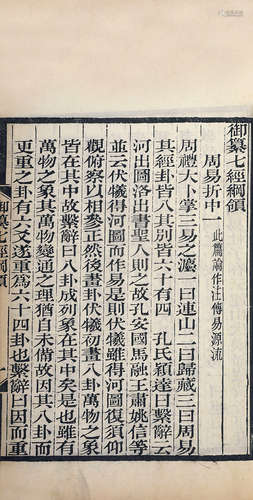 御纂七經綱領
周易折中一 此篇論作注傳易源流
周禮大卜掌三易之灋一曰連山二曰歸藏三曰周易
其經卦皆八其別皆六十有四 孔氏穎達曰繫辭云
河出圖洛出書聖人則之故孔安國馬融王肅姚信等
並云伏犧得河圖而作易是則伏犧雖得河圖復須仰
觀俯察以相參正然後畫卦伏犧初畫八卦萬物之象
皆在其中故繫辭曰八卦成列象在其中矣是也雖有
萬物之象其萬物變通之理猶自未備故因其八卦而
更重之卦有六爻遂重為六十四卦也繫辭曰因而重
御纂七經綱領